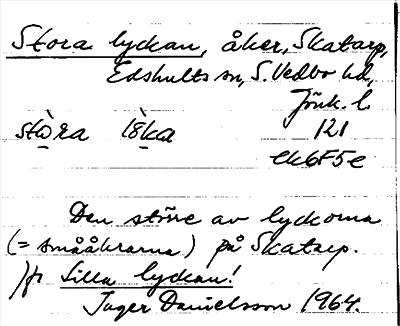 Stora lyckan, åker, Skatarp,
Edshults sn, S. Vedbo hd,
Jönk. l.
stòra lᴣ̀ka 121
ek6F5e
Den större av lyckorna
(= småäkrarna) på Skatarp.
Jfr Lilla lyckan!
Inger Danielsson 1964.